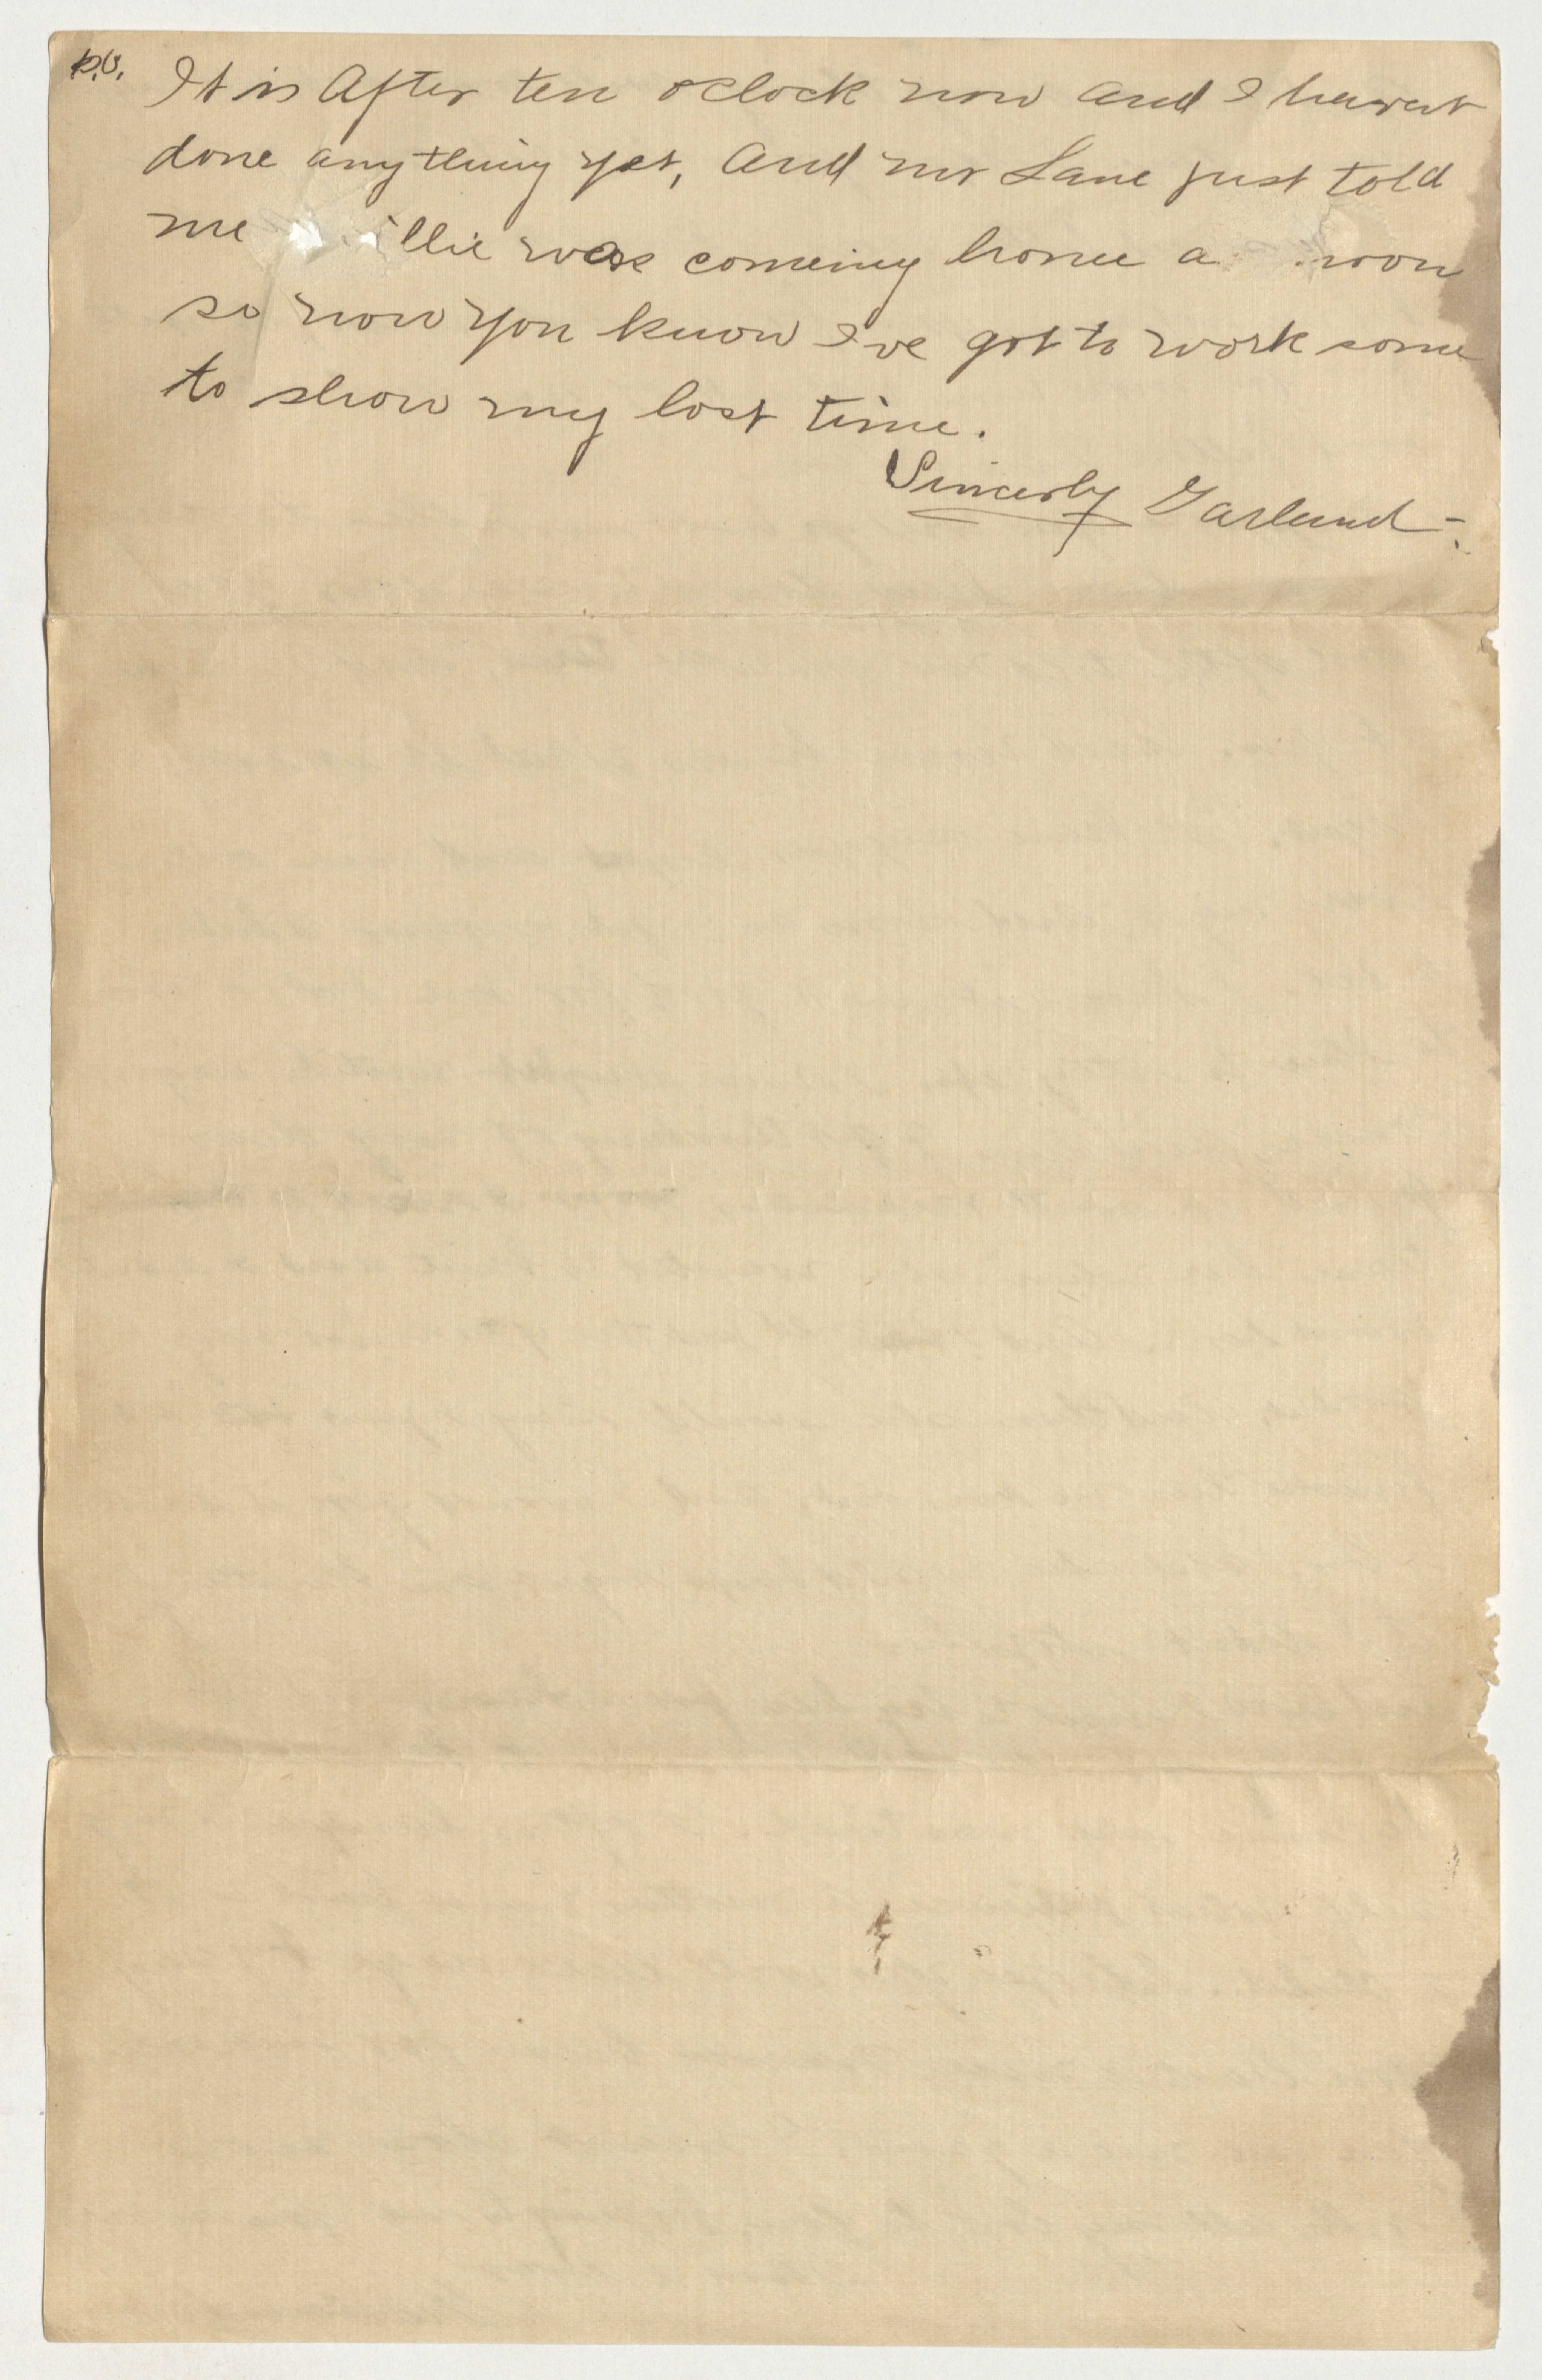 It is After ten oclock now and I havent
done anything yet, And mr Lane just told
me was comeing home a noon
so now you know I've got to work some
to show my lost time.
Sincerly Garland -